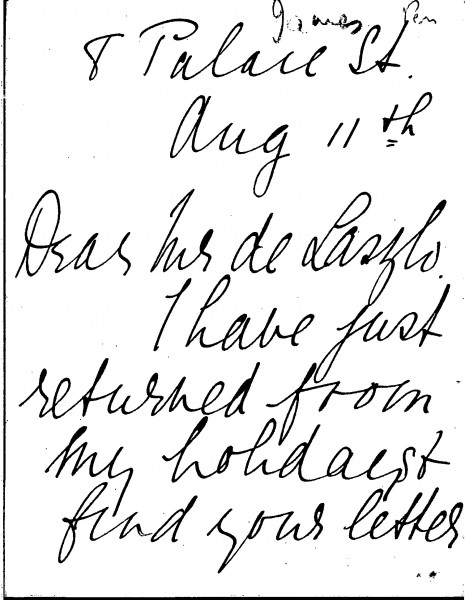 James
8 Palace St.
Aug 11th
Dear Mr de Laszlo.
I have just
returned from
my holiday &
find your letter